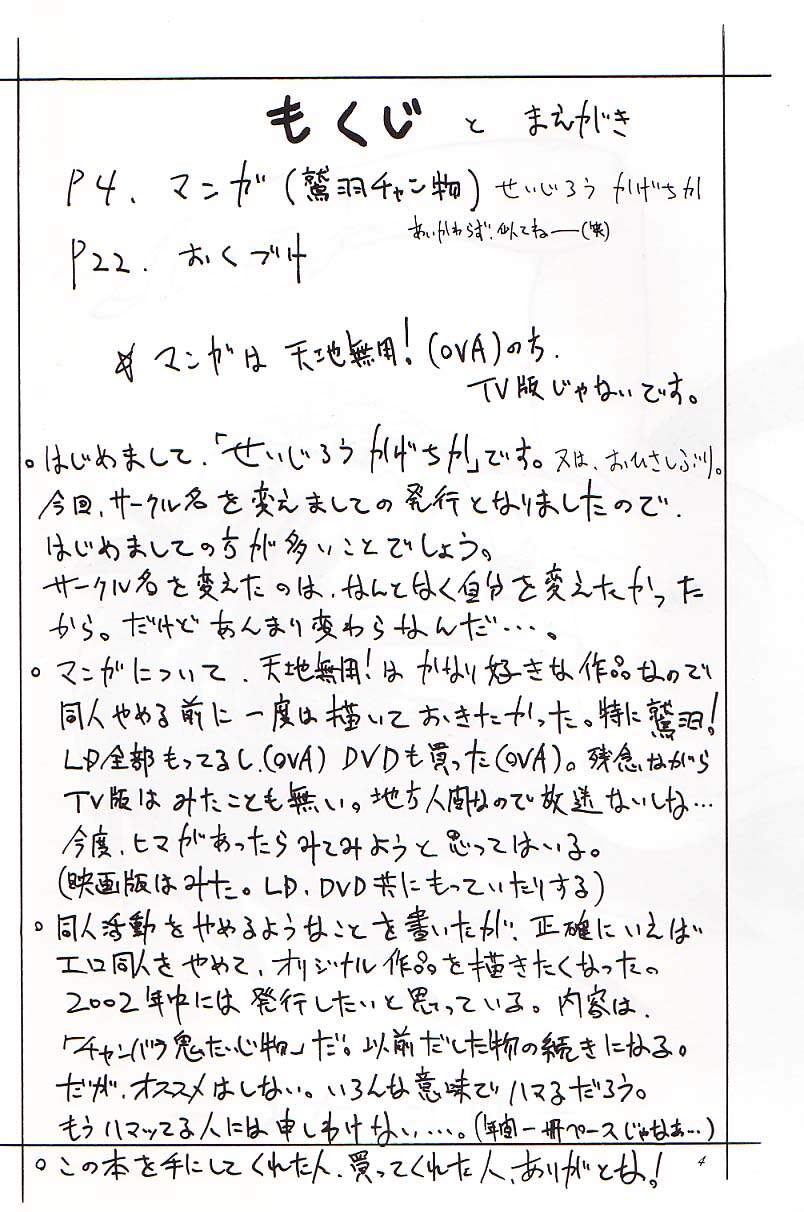 もくじ と まえがき
P4. マンガ(鷲羽チャン物) せいじろう かげちか
あいかわらず、似てねー(笑)
P22. おくづけ
☆ マンガは 天地無用!(OVA)のち.
TV版じゃないです。
○はじめまして、「せいじろう かげちか」です。又は、おひさしぶり。
今回、サークル名を変えましての発行となりましたので、
はじめましての方が多いことでしょう。
サークル名を変えたのは、なんとなく自分を変えたかった
から。だけど あんまり変わらなんだ…。
○ マンガについて、天地無用!は かなり好きな作品なので
同人やめる前に一度は描いておきたかった。特に鷲羽!
LD全部もってるし、(OVA) DVDも買った(OVA)。残念ながら
TV版は みたことも無い。地方人間なので放送ないしな…
今度、ヒマがあったらみてみようと思ってはいる。
(映画版はみた。LD、DVD共にもっていたりする)
○ 同人活動をやめるようなことを書いたが、正確にいえば
エロ同人をやめて、オリジナル作品を描きたくなったの。
2002年中には発行したいと思っている。内容は、
「チャンバラ鬼たいじ物」だ。以前だした物の続きになる。
だが、オススメはしない。いろんな意味でハマるだろう。
もうハマッてる人には申しわけない…。(年間一冊ペースじゃなぁ…)
○ この本を手にしてくれた人、買ってくれた人、ありがとな!
4